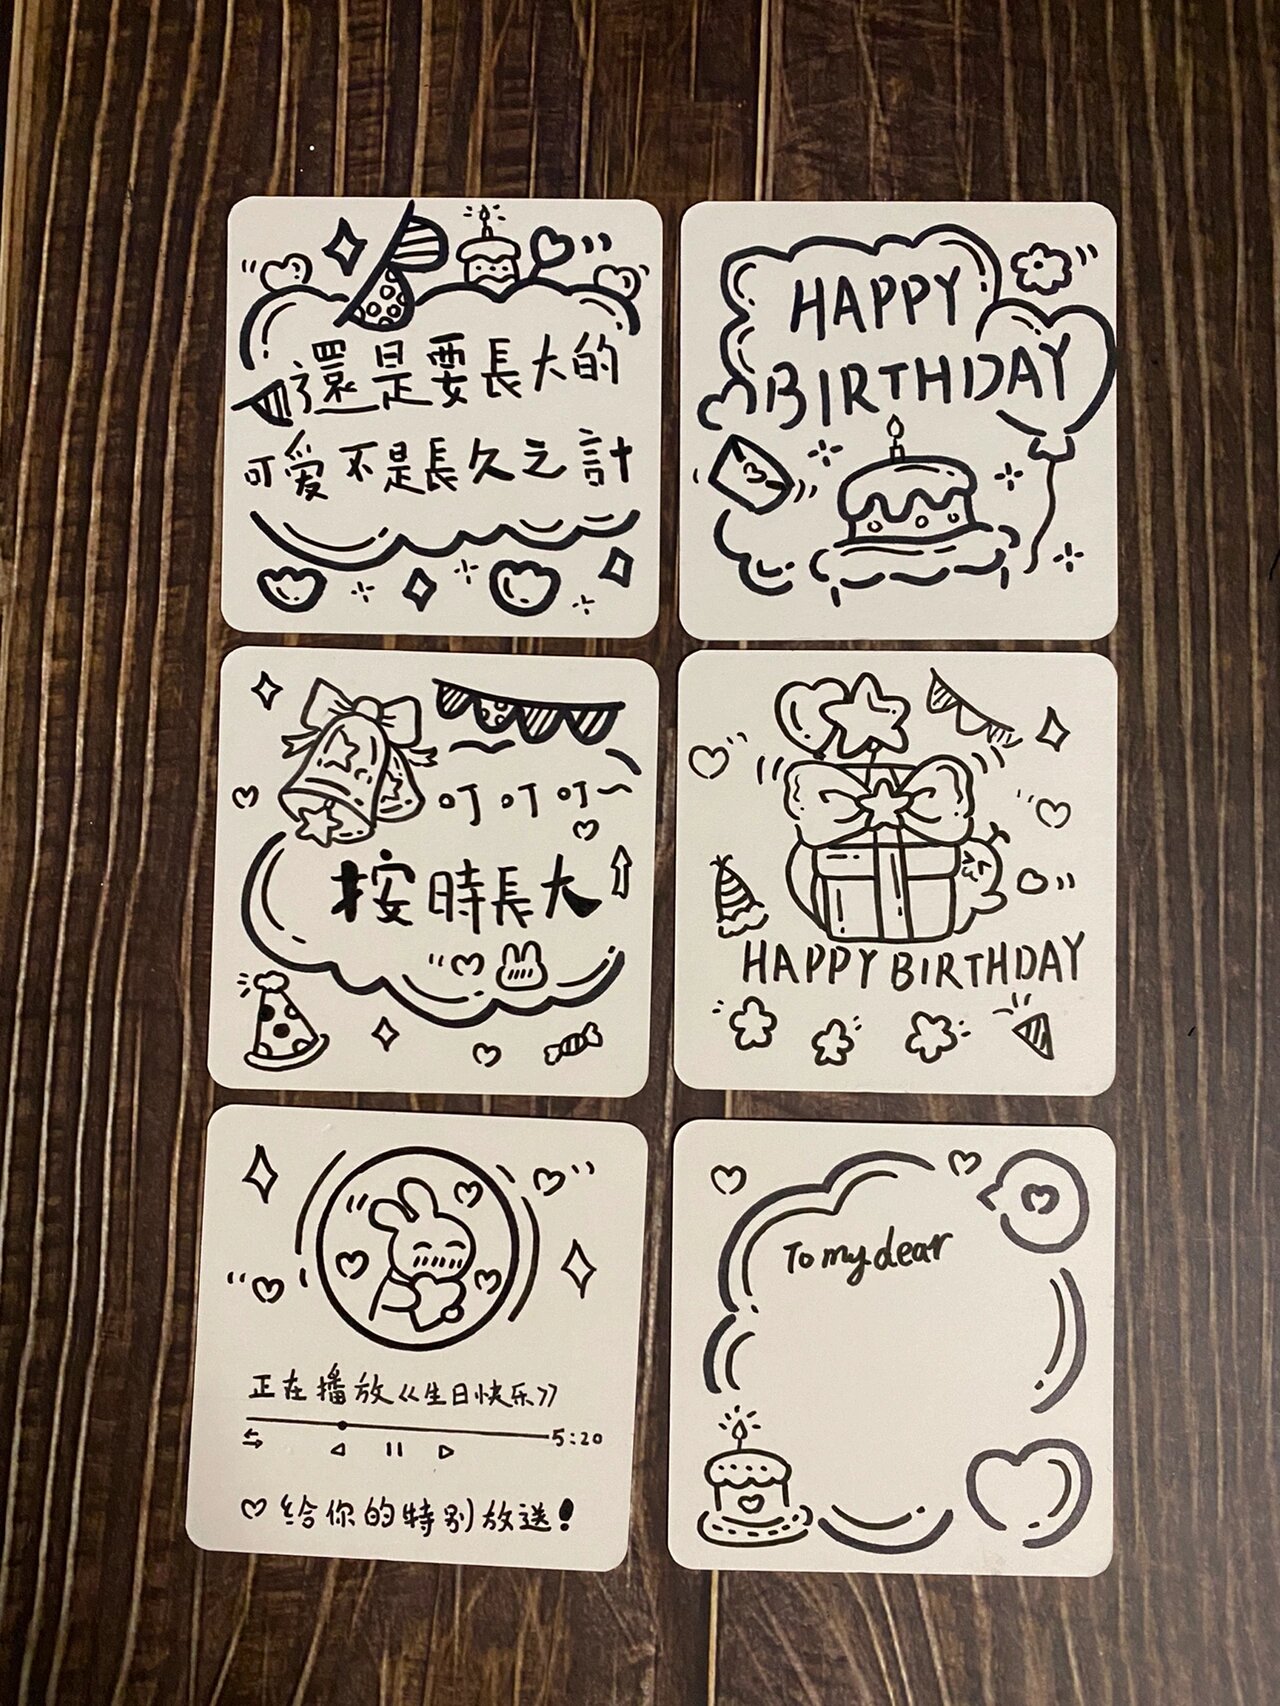 還是要長大的
可爱不是長久之計
HAPPY
BIRTHDAY
叮叮叮~
按時長大
HAPPY BIRTHDAY
正在播放《生日快乐》
5:20
给你的特别放送!
To my dear